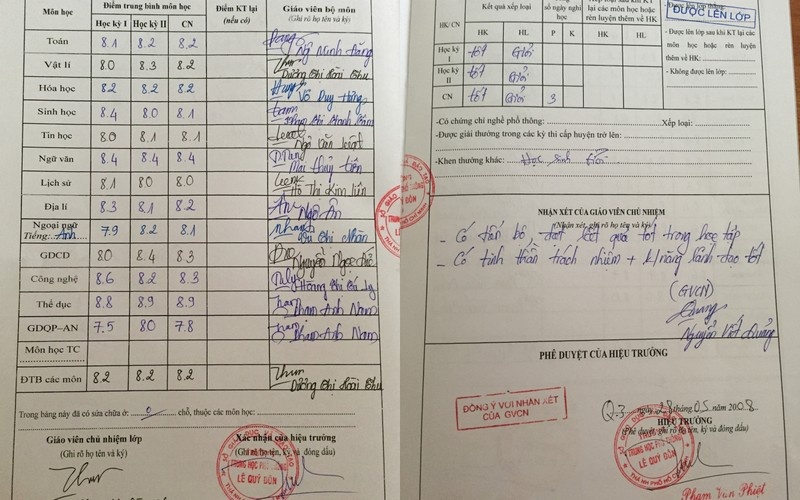 Môn học
Điểm trung bình môn học
Điểm KT lại
(nếu có)
Giáo viên bộ môn
(Ghi rõ họ tên và ký)
Học kỳ I Học kỳ II CN
Toán 8.1 8.2 8.2
Vật lí 8.0 8.3 8.2
Hóa học 8.2 8.2 8.2 Võ Duy Hùng
Sinh học 8.4 8.0 8.1
Tin học 8.0 8.1 8.1
Ngữ văn 8.4 8.4 8.4 Mai Thuỷ Tiên
Lịch sử 8.1 80 8.0 Hồ Thị Kim Liên
Địa lí 8.3 8.1 8.2
Ngoại ngữ
Tiếng: Anh 7.9 8.2 8.1
GDCD 80 8.4 8.3
Công nghệ 8.6 8.2 8.3
Thể dục 8.8 8.9 8.9 Phạm Anh Nam
GDQP–AN 7.5 80 7.8 Phạm Anh Nam
Môn học TC
ĐTB các môn 8.2 8.2 8.2
Trong bảng này có sửa chữa ở: 0 chỗ, thuộc các môn học:
Giáo viên chủ nhiệm lớp
(Ghi rõ họ tên và ký)
Xác nhận của hiệu trưởng
(Ghi rõ họ tên, ký và đóng dấu)
TRUNG HỌC PHỔ THÔNG
LÊ QUÝ ĐÔN
HK/ CN
Kết quả xếp loại
số ngày nghỉ học
các môn học hoặc
rèn luyện thêm về HK
HK HL P K HK HL
Học kỳ I tốt Giỏi
Học kỳ II tốt Giỏi
CN tốt Giỏi 3
ĐƯỢC LÊN LỚP
- Được lên lớp sau khi KT lại
các môn học hoặc rèn luyện
thêm về HK:
- Không được lên lớp:
-Có chứng chỉ nghề phổ thông: Xếp loại:
-Được giải thưởng trong các kỳ thi cấp huyện trở lên:
-Khen thưởng khác: Học sinh Giỏi
NHẬN XÉT CỦA GIÁO VIÊN CHỦ NHIỆM
(Nhận xét, ghi rõ họ tên và ký)
- Có tiến bộ đạt kết quả tốt trong học tập
- Có tinh thần trách nhiệm + k/năng lãnh đạo tốt
(GVCN)
PHÊ DUYỆT CỦA HIỆU TRƯỞNG
ĐỒNG Ý VỚI NHẬN XÉT
CỦA GVCN
Q.3, ngày 28 tháng 05 năm 2008
HIỆU TRƯỞNG
(Phê duyệt, ghi rõ họ tên, ký và đóng dấu)
LÊ QUÝ ĐÔN